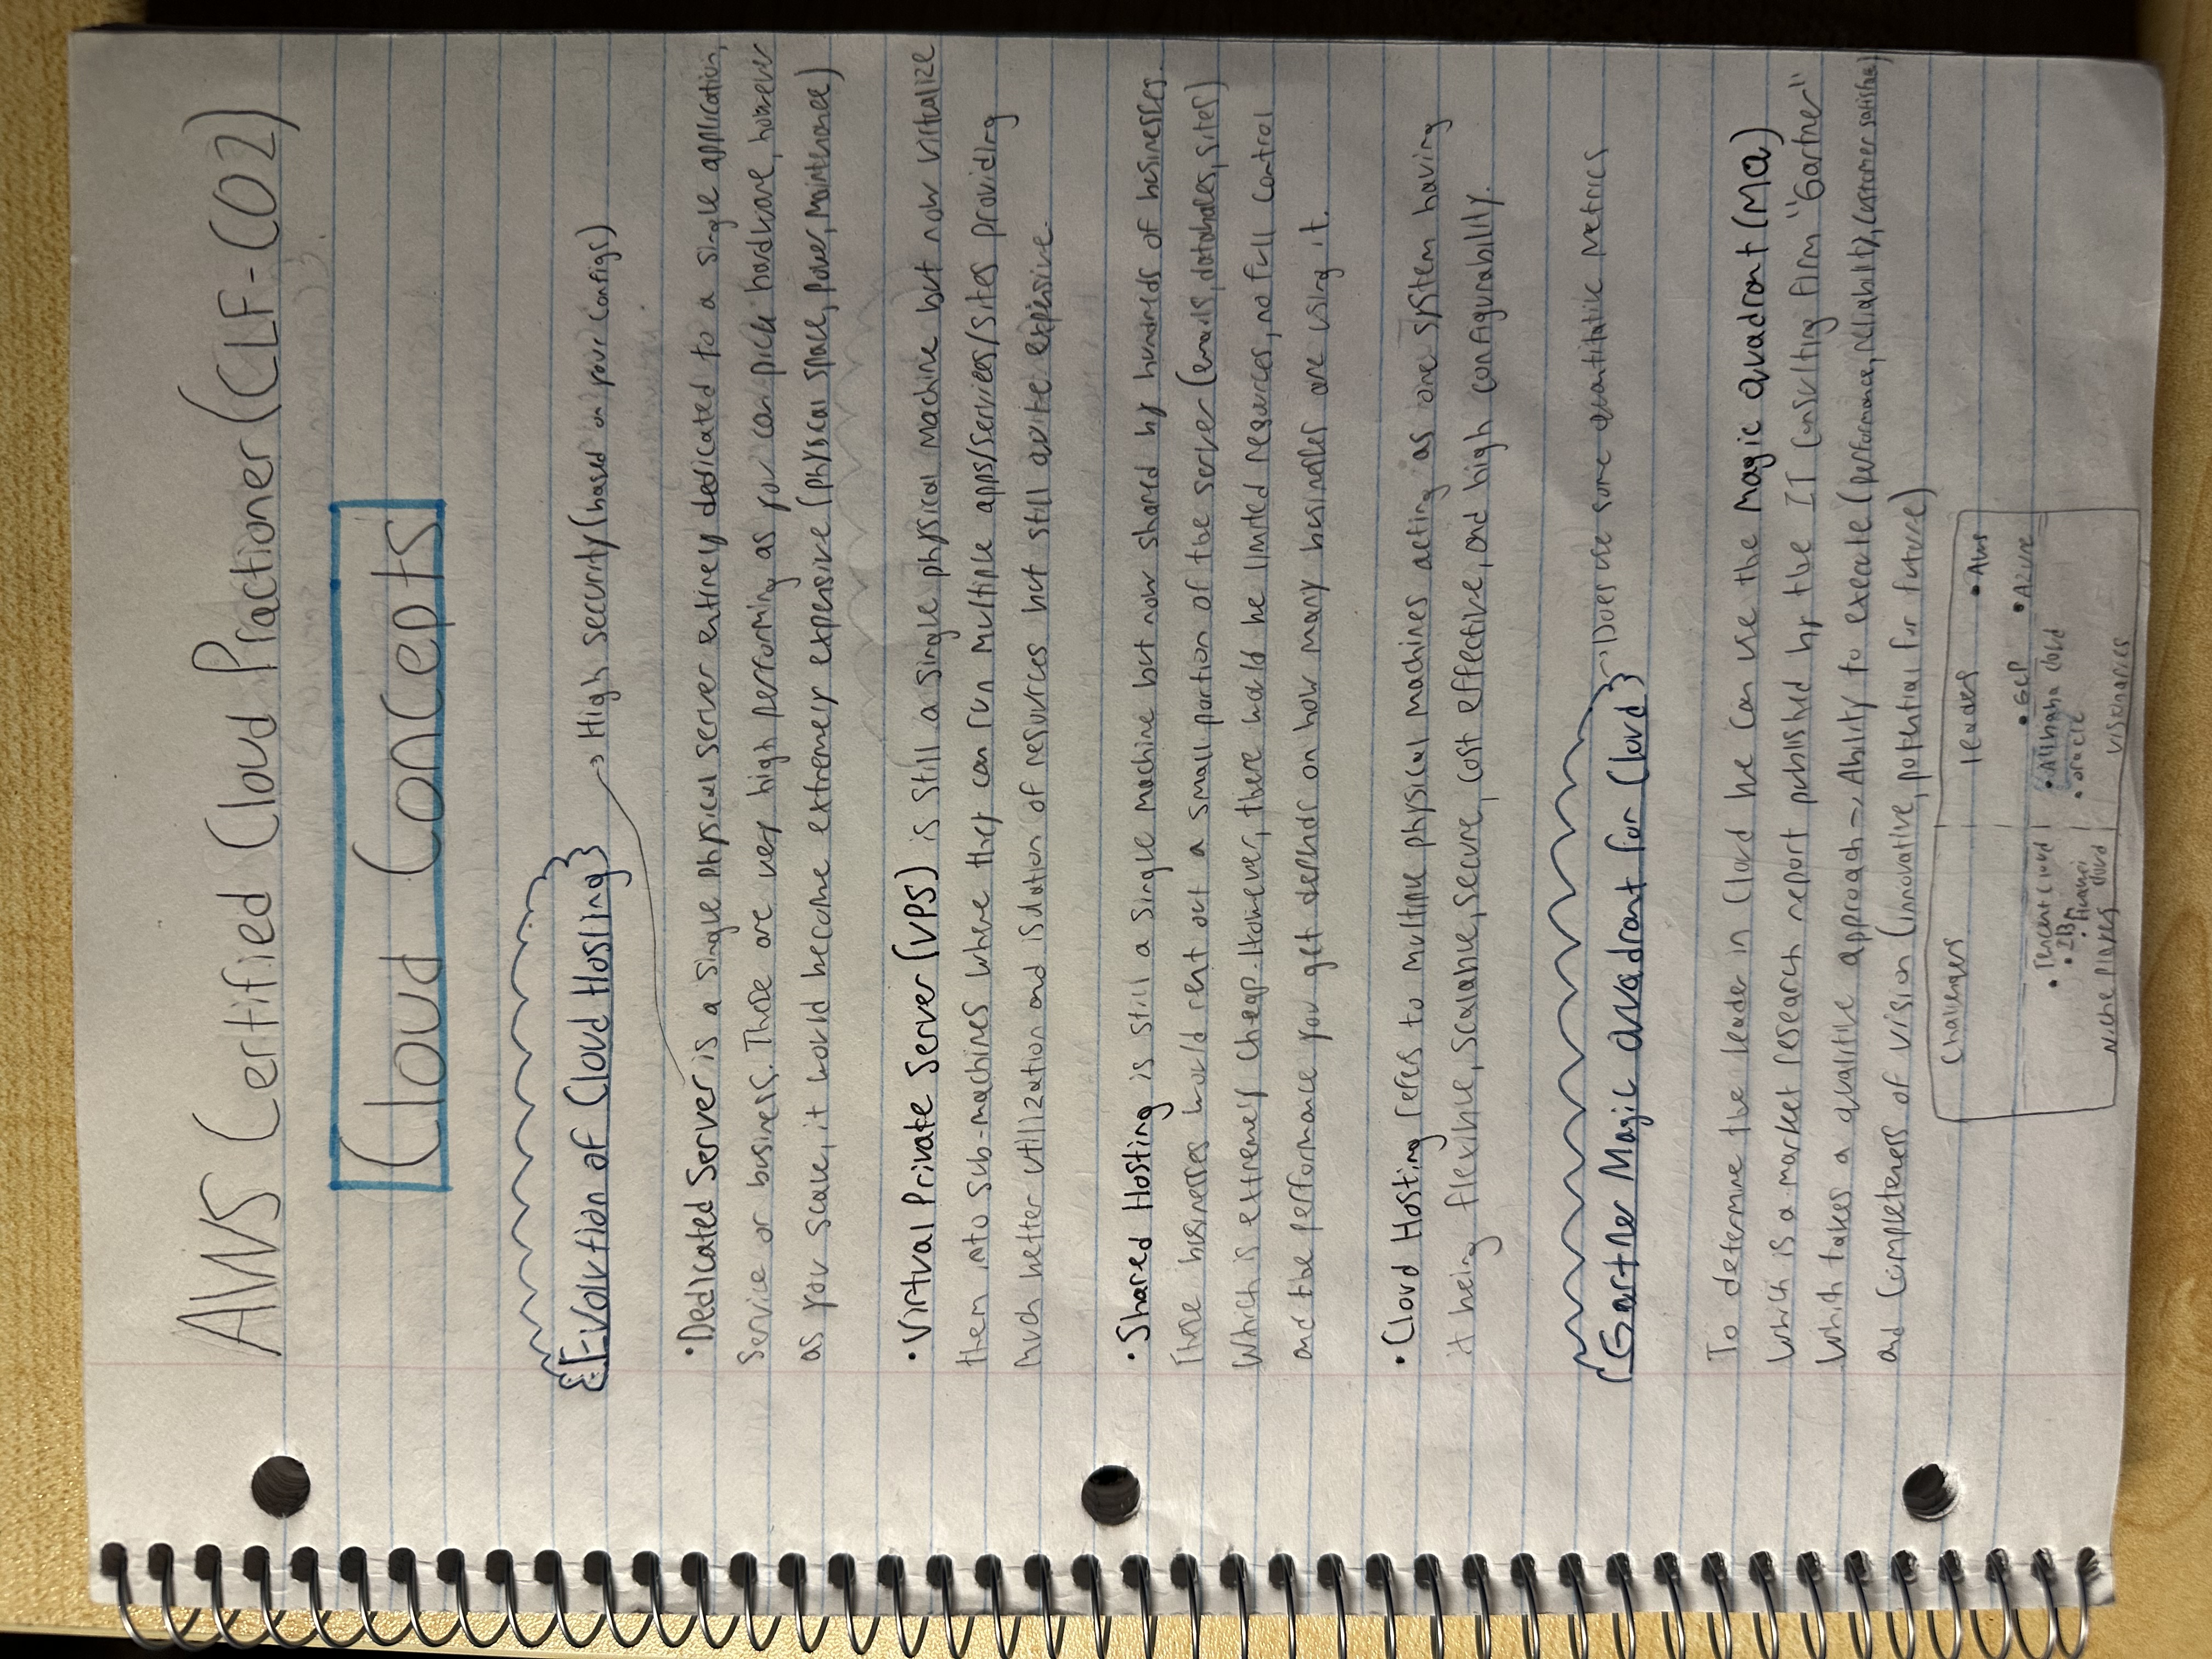 AWS Certified Cloud Practioner (CLF-C02)
Cloud Concepts
Evolution of Cloud Hosting
→ High security (based on your configs)
• Dedicated Server is a single physical server entirely dedicated to a single application,
Service or business. These are very high performing as you can pick hardware, however
as you scale, it would become extremely expensive (physical space, power, maintenance)
• Virtual Private Server (VPS) is still a single physical machine but now virtualize
them into sub-machines where they can run multiple apps/services/sites providing
much better utilization and isolation of resources but still quite expensive.
• Shared Hosting is still a single machine but now shared by hundreds of businesses.
These businesses would rent out a small portion of the server (emails, databases, sites)
Which is extremely cheap. However, there would be limited resources, no full control
and the performance you get depends on how many businesses are using it.
• Cloud Hosting refers to multiple physical machines acting as one system having
it being flexible, scalable, secure, cost effective, and high configurability.
Gartner Magic Quadrant for Cloud
→ Does use some quantitative metrics
To determine the leader in cloud we can use the Magic Quadrant (MQ)
which is a market research report published by the IT consulting firm "Gartner"
which takes a qualitive approach → Ability to execute (performance, reliability, customer
and completeness of vision (innovative, potential for future)
Challengers
leaders
• AWS
• GCP
• Azure
• Tencent Cloud
• IBM
• Huawei cloud
Niche Players
• Alibaba cloud
• oracle
visionaries